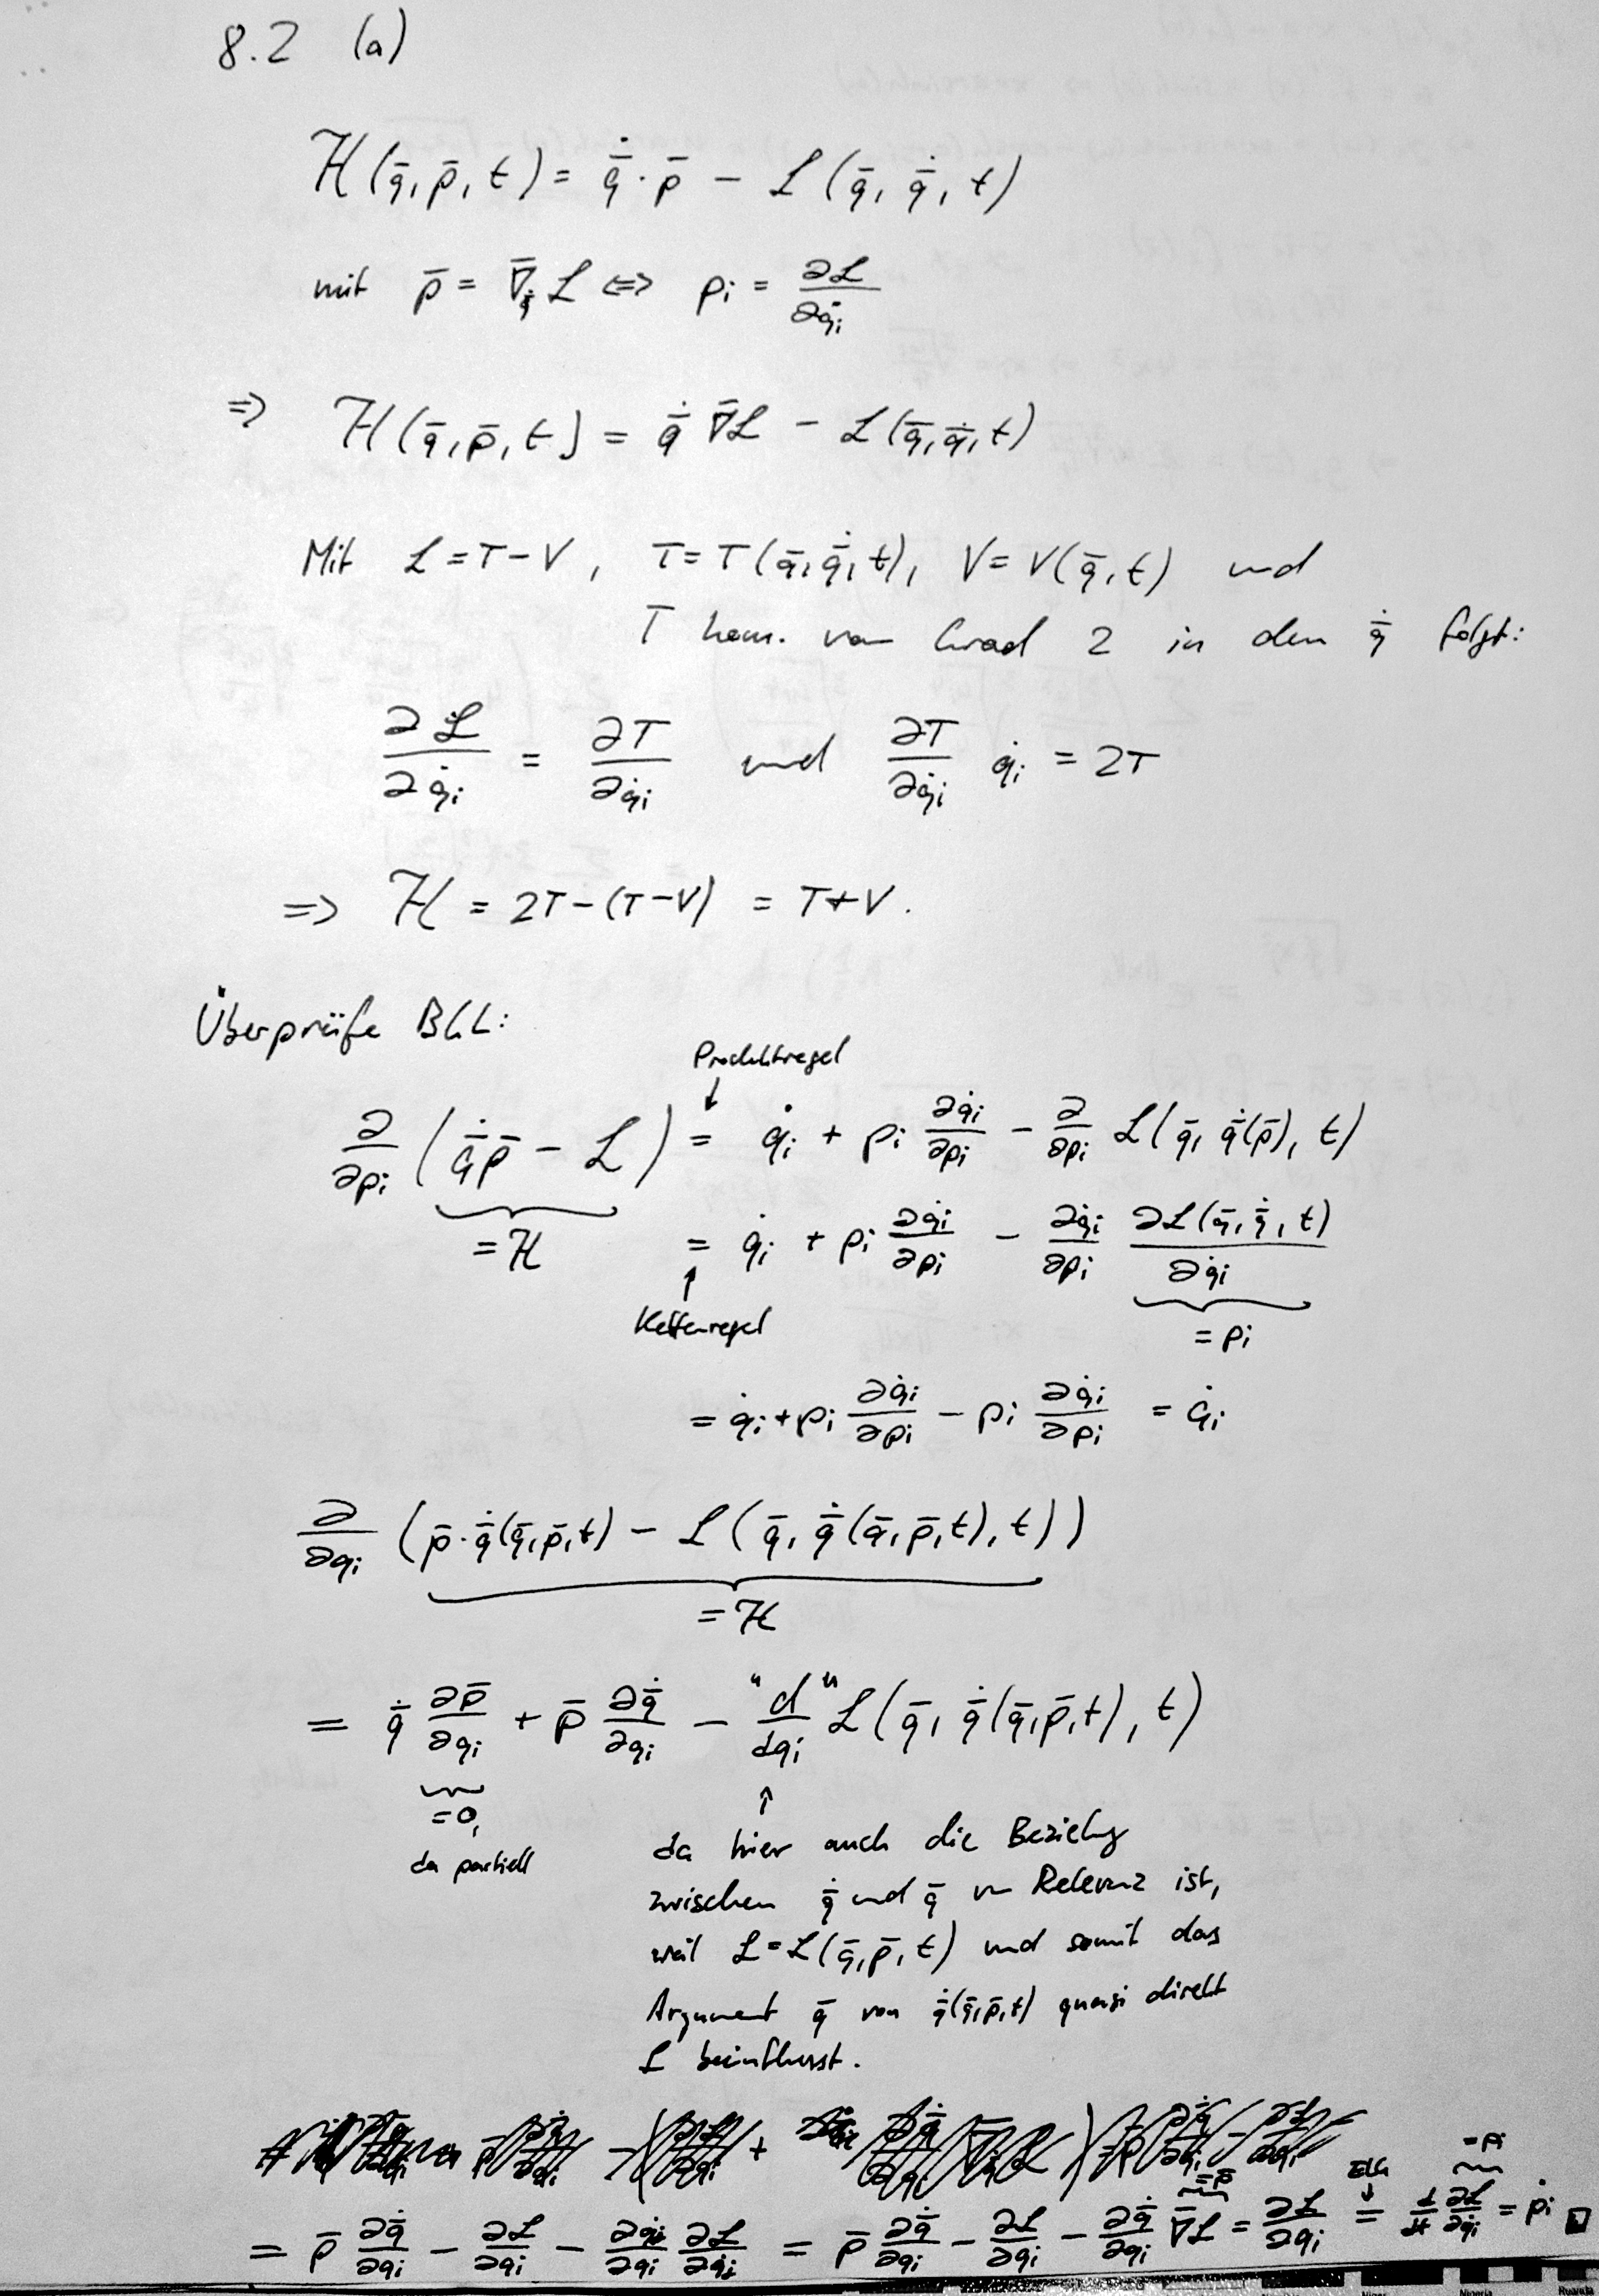 8.2 (a)
ℋ(q̄, p̄, t) = q̄̇ · p̄ − ℒ(q̄, q̄̇, t)
mit p̄ = ∇̄_q̇ ℒ ⇔ pᵢ = ∂ℒ/∂q̇ᵢ
⇒ ℋ(q̄, p̄, t) = q̄̇ ∇̄ℒ − ℒ(q̄, q̄̇, t)
Mit ℒ = T − V, T = T(q̄, q̄̇, t), V = V(q̄, t) und
T hom. von Grad 2 in den q̄̇ folgt:
∂ℒ/∂q̇ᵢ = ∂T/∂q̇ᵢ und ∂T/∂q̇ᵢ q̇ᵢ = 2T
⇒ ℋ = 2T − (T − V) = T + V.
Überprüfe BGL:
Produktregel
↓
∂/∂pᵢ (q̄̇p̄ − ℒ) = q̇ᵢ + pᵢ ∂q̇ᵢ/∂pᵢ − ∂/∂pᵢ ℒ(q̄, q̄̇(p̄), t)
= ℋ
= q̇ᵢ + pᵢ ∂q̇ᵢ/∂pᵢ − ∂q̇ᵢ/∂pᵢ ∂ℒ(q̄, q̄̇, t)/∂q̇ᵢ
↑
Kettenregel
= pᵢ
= q̇ᵢ + pᵢ ∂q̇ᵢ/∂pᵢ − pᵢ ∂q̇ᵢ/∂pᵢ = q̇ᵢ
∂/∂qᵢ (p̄ · q̄̇(q̄, p̄, t) − ℒ(q̄, q̄̇(q̄, p̄, t), t))
= ℋ
= q̄̇ ∂p̄/∂qᵢ + p̄ ∂q̄̇/∂qᵢ − "d"/dqᵢ ℒ(q̄, q̄̇(q̄, p̄, t), t)
= 0,
da partiell
↑
da hier auch die Beziehg
zwischen q̄̇ und q̄ von Relevanz ist,
weil ℒ = ℒ(q̄, p̄, t) und somit das
Argument q̄ von q̄̇(q̄, p̄, t) quasi direkt
ℒ beeinflusst.
= p̄ ∂q̄̇/∂qᵢ − ∂ℒ/∂qᵢ − ∂q̇ⱼ/∂qᵢ ∂ℒ/∂q̇ⱼ = p̄ ∂q̄̇/∂qᵢ − ∂ℒ/∂qᵢ − ∂q̄̇/∂qᵢ ∇̄ℒ = ∂ℒ/∂qᵢ = d/dt ∂ℒ/∂q̇ᵢ = ṗᵢ □
= p̄
ELG
↓
= pᵢ
Niger
Nigeria
Ruanda